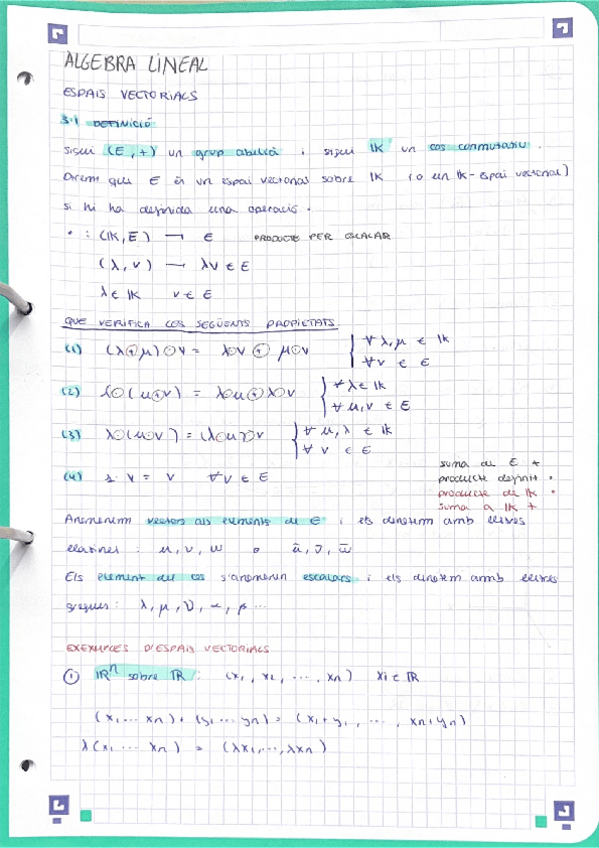 ALGEBRA LINEAL
ESPAIS VECTORIALS
3.1 DEFINICIÓ
Sigui (E, +) un grup abelià i sigui IK un cos conmutatiu.
Direm que E és un espai vectorial sobre IK (o un IK-espai vectorial)
si hi ha definida una operació.
• : (IK, E) → E PRODUCTE PER ESCALAR
(λ, v) → λv ∈ E
λ ∈ IK v ∈ E
QUE VERIFICA LOS SEGÜENTS PROPIETATS
(1) (λ⊕μ)⊙v = λ⊙v ⊕ μ⊙v { ∀ λ, μ ∈ IK
∀ v ∈ E
(2) λ⊙(u⊕v) = λ⊙u⊕λ⊙v { ∀ λ ∈ IK
∀ u, v ∈ E
(3) λ⊙(μ⊙v) = (λ⊙μ)⊙v { ∀ μ, λ ∈ IK
∀ v ∈ E
(4) 1 · v = v ∀ v ∈ E
suma de E +
producte definit •
producte de IK •
suma a IK +
Anomenem vectors als elements de E i els denotem amb lletres
llatines : u, v, w o ū, v̄, w̄
Els element del cos s'anomenen escalars i els denotem amb lletres
gregues : λ, μ, ν, α, β ...
EXEMPLES D'ESPAIS VECTORIALS
① IRⁿ sobre IR : (x₁, x₂, ..., xₙ) xi ∈ IR
(x₁ ... xₙ) + (y₁ ... yₙ) = (x₁+y₁, ..., xₙ+yₙ)
λ(x₁ ... xₙ) = (λx₁, ..., λxₙ)